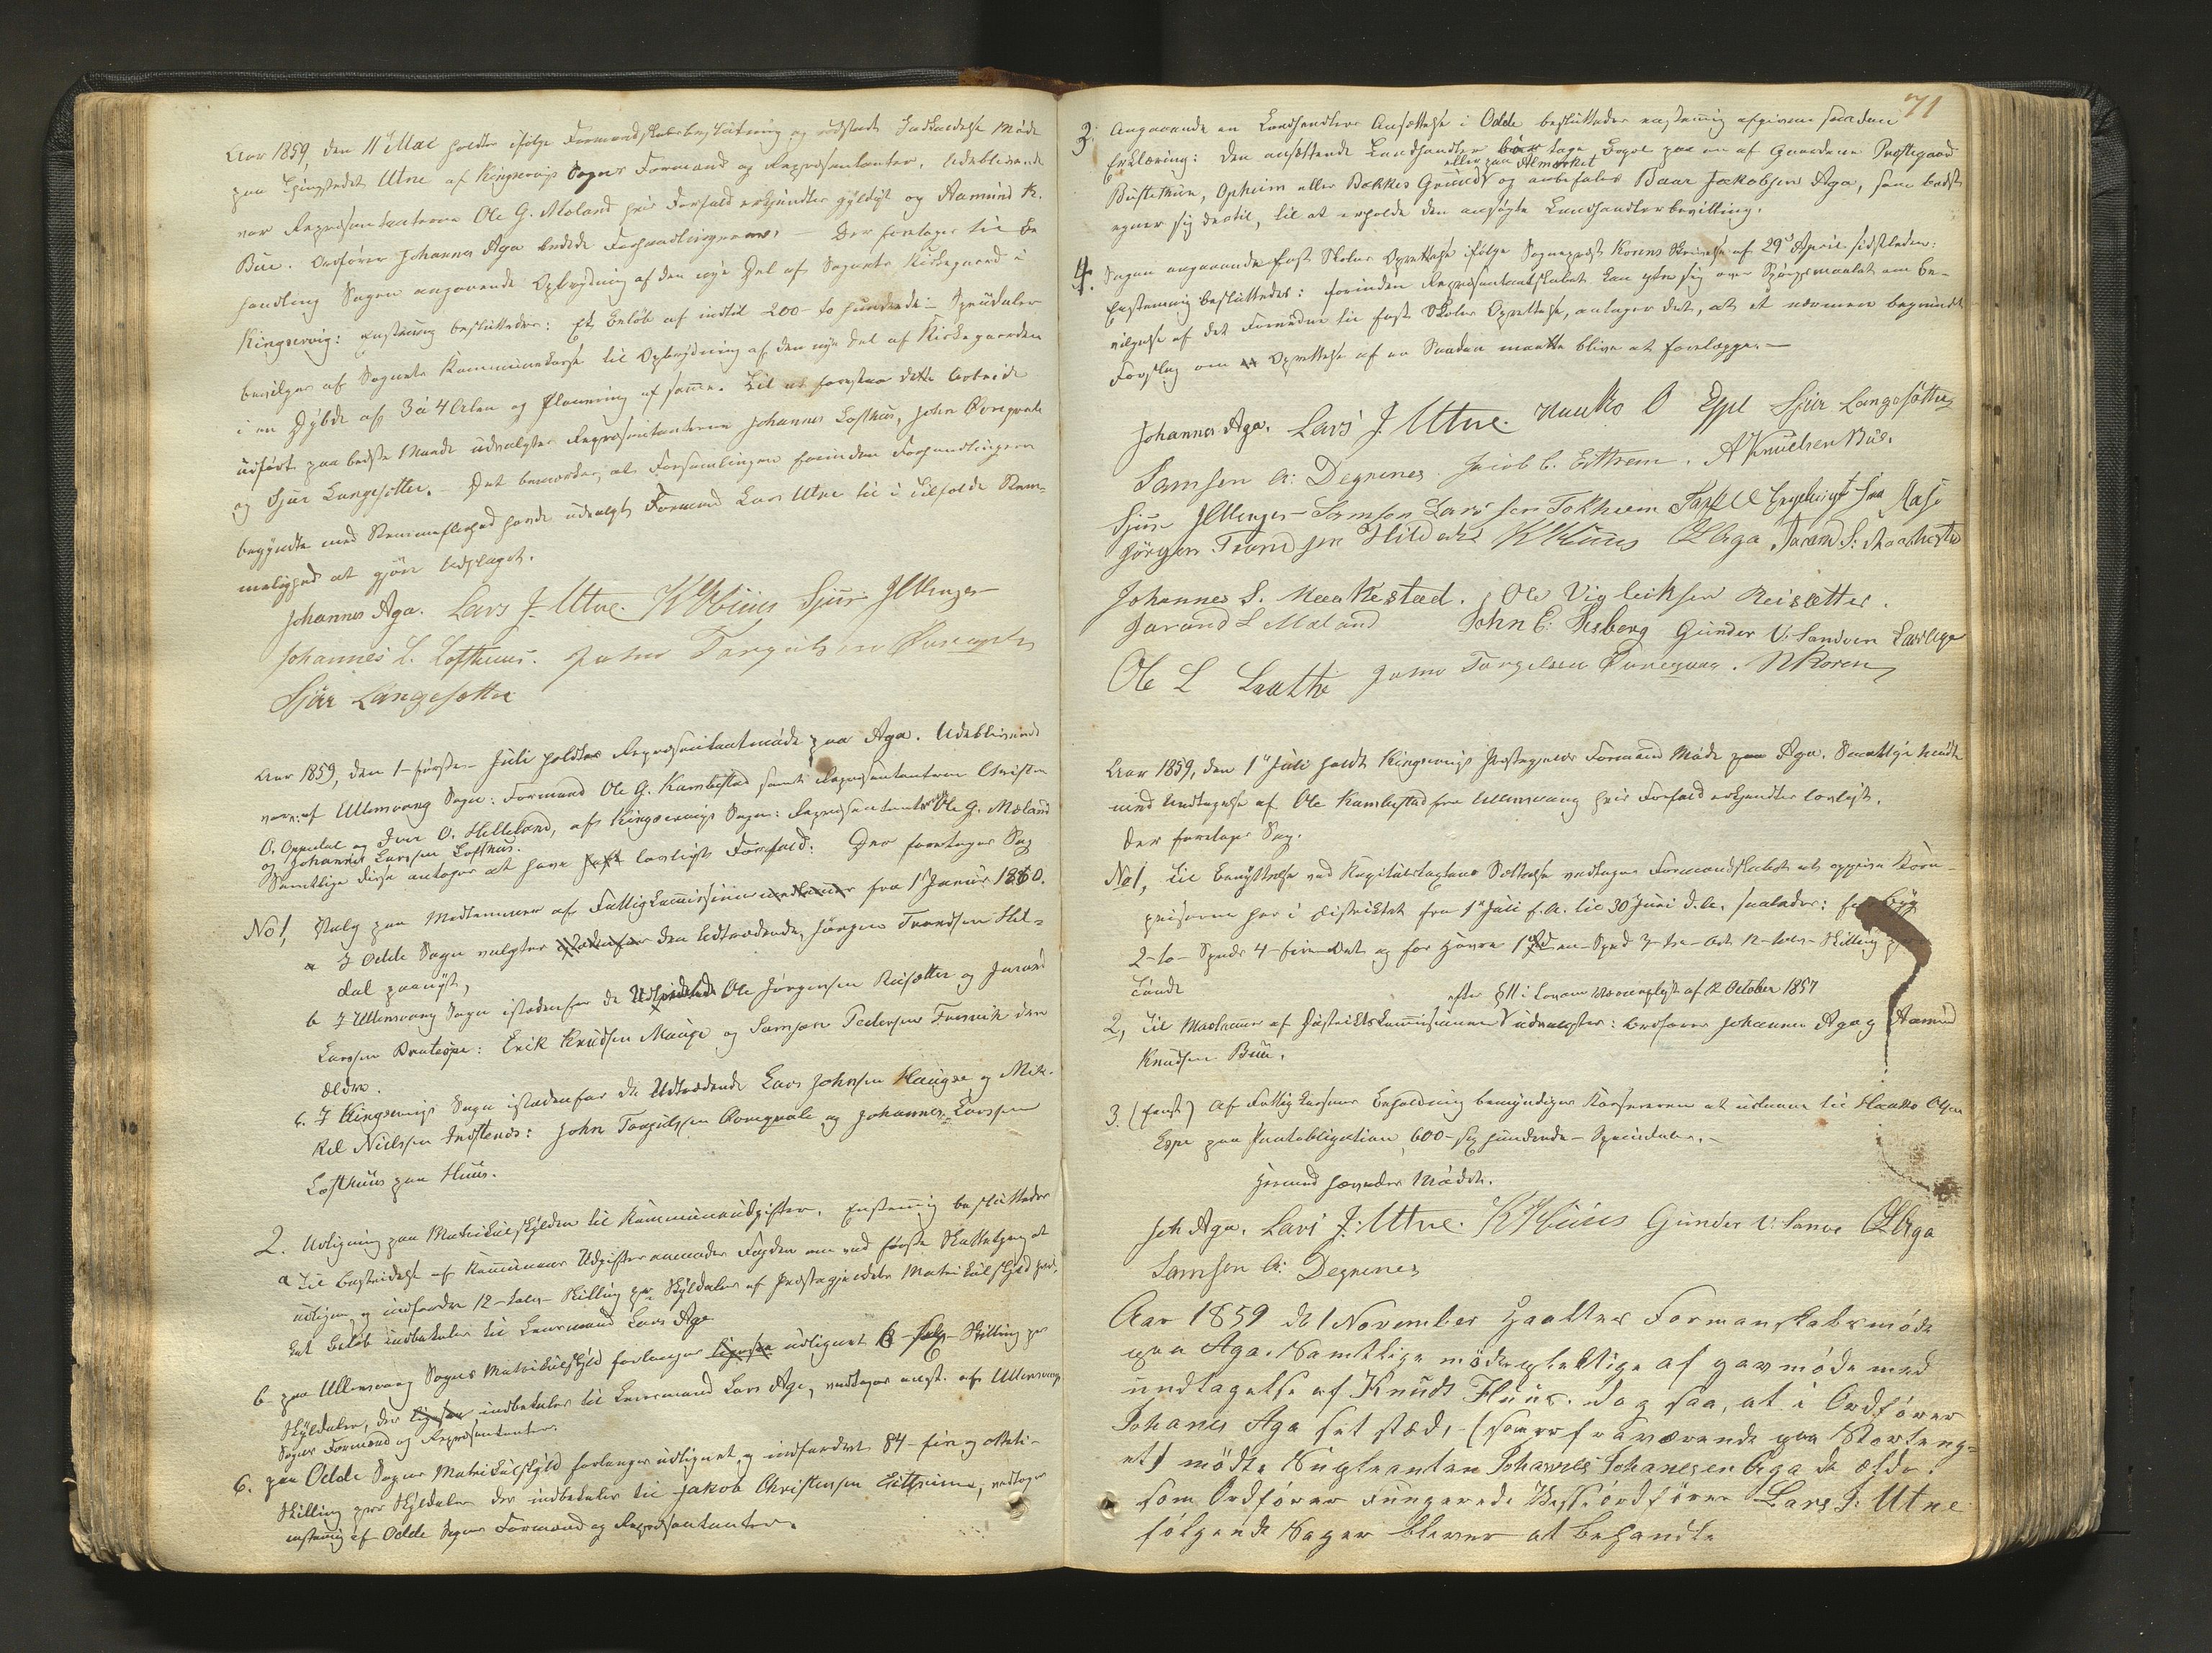 Aar 1859, den 11te Mai holdtes ifølge Formandskabsbeslutning og udstedt Indkaldelse Møde
paa Thingstedet Utne af Kingservigs Sogns Formænd og Repræsentanter. Udeblivende
var Repræsentanterne Ole G. Moland hvis Forfald erkjendtes gyldigt og Aamund K.
Bue. Ordfører Johannes Aga ledede Forhandlingerne. – Der foretoges til Be
handling Sagen angaaende Opbrydning af den nye Del af Sognets Kirkegaard i
Kingservig: Enstemmig besluttedes: Et Beløb af indtil 200 – to hundrede – Speciedaler
bevilges af Sognets Kommunekasse til Opbrydning af den nye Del af Kirkegaarden
i en Dybde af 3 à 4 Alen og Planering af samme. Til at forestaa dette Arbeide
udført paa bedste Maade udvalgtes Repræsentanterne Johannes Lofthus, John Qvregvale
og Sjur Langesætter. – Det bemærkes, at Forsamlingen forinden Forhandlingerne
begyndte med Stemmeflerhed havde udvalgt Formand Lars Utne til i Tilfælde Stem-
melighed at gjøre Udslaget.
Johannes Aga. Lars J. Utne. K Huus Sjur JUllenger
Johannes L. Lofthuus. John Torgilsen Qvregvale
Sjur Langesætter
Aar 1859, den 1 – første – Juli holdtes Repræsentantmøde paa Aga. Udeblivende
vare: af Ullensvang Sogn: Formand Ole G. Kambestad samt Repræsentanterne Christen
O. Oppedal og Iver O. Helleland, af Kingservigs Sogn: Repræsentanterne Ole G. Moland
og Johannes Larssen Lofthus.
Samtlige disse antoges at have havt lovligt Forfald. Der foretoges Sag
No 1, Valg paa Medlemmer af Fattigkommissionen medlemmer fra 1ste Januar 1860.
a I Odde Sogn valgtes istedenfor den Udtrædende, Jørgen Trondsen Hil-
dal paanyt,
b I Ullensvang Sogn istedenfor de Udtrædende Ole Jørgensen Reisæter og Jarand
Larssen Bratespe: Erik Knudsen Mauge og Samson Pedersen Fresvik den
ældre.
c. I Kingservigs Sogn istedenfor de Udtrædende Lars Johnsen Haugse og Mik-
kel Nielssen Indstenes: John Torgilssen Qvregvale og Johannes Larssen
Lofthuus paa Huus.
2. Udligning paa Matrikulskylden til Kommuneudgifter. Enstemmig besluttedes
a Til Bestridelse af Kommunens Udgifter anmodes Fogden om ved første Skattething at
udligne og indfordre 12 – tolv – Skilling pr Skylddaler af Præstegjeldets Matrikulskyld hvil-
ket Beløb indbetales til Lensmand Lars Aga.
b paa Ullensvang Sogns Matrikulskyld forlanges ligesaa udlignet Skilling per
Skylddaler, der ligesaa indbetales til Lensmand Lars Aga, vedtoges enst. af Ullensvang
Sogns Formænd og Repræsentanter.
c. paa Odde Sogns Matrikulskyld forlanges udlignet og indfordret 84 – fire og otteti –
Skilling per Skylddaler der indbetales til Jakob Christensen Eitheim, vedtoges
enstemmig af Odde Sogns Formænd og Repræsentanter.
71
3. Angaaende en Landhandlers Ansættelse i Odde besluttedes enstemmig afgiven saadan
Erklæring: Den ansættende Landhandler bør tage Bopæl paa en af Gaardene Præstegaard
eller paa Almarket
Bustethun, Opheim eller Bakkes Grund og anbefales Baar Jakobsen Aga, som bedst
egner sig dertil, til at erholde den ansøgte Landhandlerbevilling.
4. Sagen angaaende fast Skoles Oprettelse ifølge Sogneprest Korens Skrivelse af 29de April sidstleden:
Enstemmig besluttedes: forinden Repræsentantskabet kan ytre sig over Spørgsmaalet om Be-
vilgelse af det Fornødne til fast Skoles Oprettelse, antages det, at et nærmere begrundet
Forslag om Oprettelse af en Saadan maatte blive at forelægge. –
Johannes Aga. Lars J. Utne. Haako O Espe Sjur Langesætter
Samson A: Degrenes Jacob C. Eitrem. A Knudsen Bue.
Sjur JUllenger – Samson Larssen Tokheim
Jørgen Tronsen Hildal K Huus L Aga Jarand S: Maakestad
Johannes S. Maakestad. Ole Vigleiksen Reisætter.
Jarand L Moland John E: Risberg Gunder V. Sandven Lars Aga
Ole L Laathe John Torgilsen Qvregvale. N Koren
Aar 1859, den 1ste Juli holdt Kingservigs Præstegjelds Formænd Møde paa Aga. Samtlige mødte
med Undtagelse af Ole Kambestad fra Ullensvang hvis Forfald erkjendtes lovligt.
Der foretoges Sag.
No 1, Til Benyttelse ved Kapitelstaxtens Sættelse vedtages Formandskabet at opgive Korn-
priserne her i Distriktet fra 1ste Juli f. A. til 30 Juni d. A. saaledes: for Byg
2 – to – Spede 4 – fire Ort og for Havre 1 – en – Sped 3 – tre – Ort 12 – tolv – Skilling pr
Tønde
efter § 11 i Loven Værnepligt af 12 October 1857
2, Til Medlemmer af Distriktskommissionen udvalgtes: Ordfører Johannes Aga og Aamund
Knudsen Bue.
3. (Enst) Af Fattigkassens Beholdning bemyndiges Kassereren at udlaane til Haako Olsen
Espe paa Pantobligation 600 – sex hundrede – Speciedaler. –
Hermed hævedes Mødet.
Joh Aga. Lars J: Utne. K Huus Gunder V: Sanve L Aga
Samson A: Degrenes
Aar 1859 de 1 November Haaltes Formanskabsmøde
paa Aga. Samtlige mødeplektige af gav møde med
undtagelse af Knudt Huus. dog saa, at i Ordfører
Johanes Aga set stæd, – (som er fraværende paa Storteng=
et) mødte Supleanten Johannes Johanesen Aga de ældr.
som Ordfører Fungerede Viseordfører Lars J. Utne
følgende Sager blever at behandle